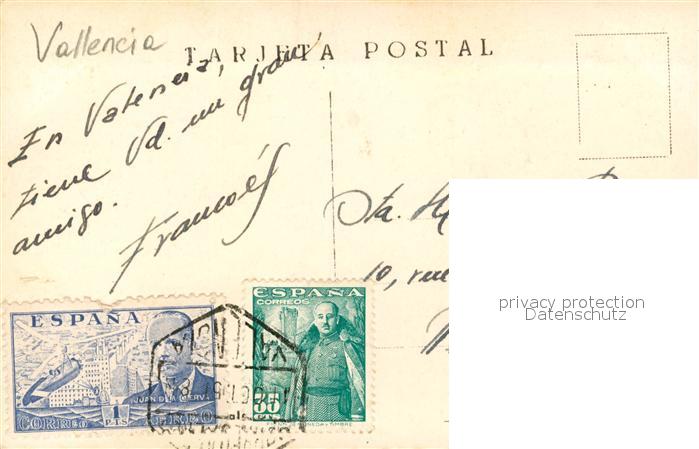 Vallencia
TARJETA POSTAL
En Valencia,
tiene Vd. un gran
amigo.
Francoés
Sta.
10, rue
privacy protection
Datenschutz
ESPAÑA
JUAN DE LA CIERVA
1
PTS
CORREO AEREO
ESPAÑA
CORREOS
35
CTS
VALENCIA